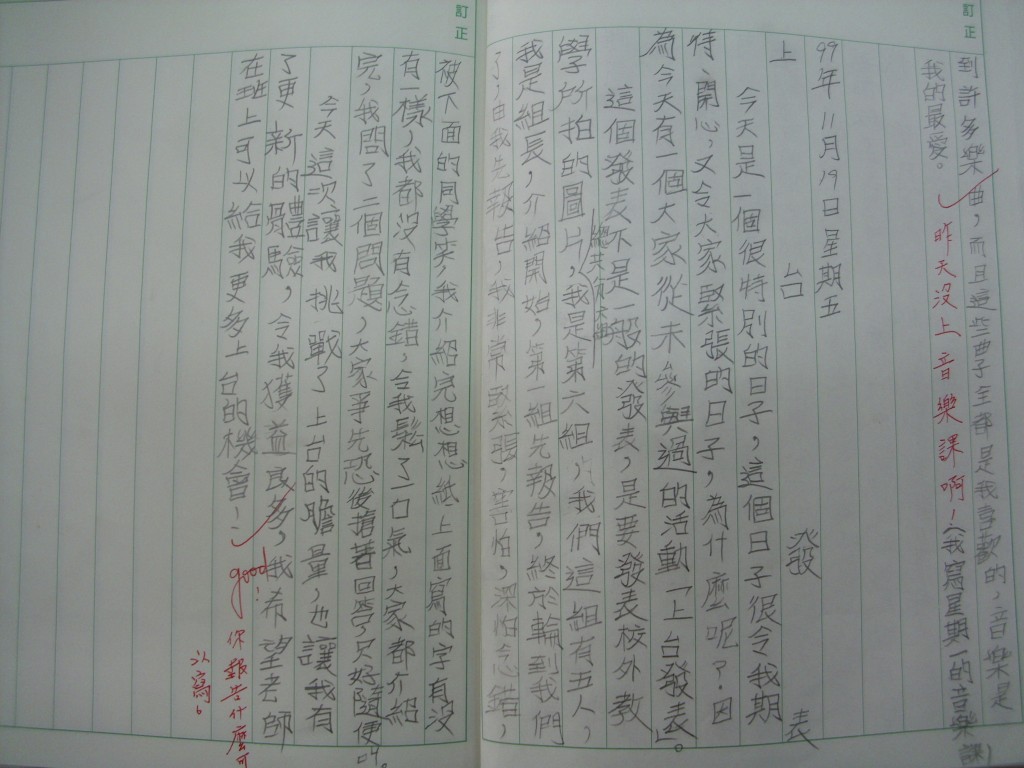 訂正
到許多樂曲,而且這些曲子全都是我喜歡的,音樂是
我的最愛。
昨天沒上音樂課啊!(我寫星期一的音樂課)
99年11月19日星期五
上台發表
今天是一個很特別的日子,這個日子很令我期
待、開心,又令大家緊張的日子,為什麼呢?因
為今天有一個大家從未參與過的活動「上台發表」。
這個發表不是一般的發表,是要發表校外教
學所拍的圖片,我是第六組,我們這組有五人,
總共有六組
我是組長,介紹開始,第一組先報告,終於輪到我們
了,由我先報告,我非常緊張,害怕,深怕念錯,
訂正
被下面的同學笑,我介紹完想想紙上面寫的字有沒
有一樣,我都沒有念錯,令我鬆了一口氣,大家都介紹
完,我問了二個問題,大家爭先恐後搶著回答,只好隨便叫。
今天這次讓我挑戰了上台的膽量,也讓我有
了更新的體驗,令我獲益良多,我希望老師
在班上可以給我更多上台的機會!
good!你報告什麼可
以寫。